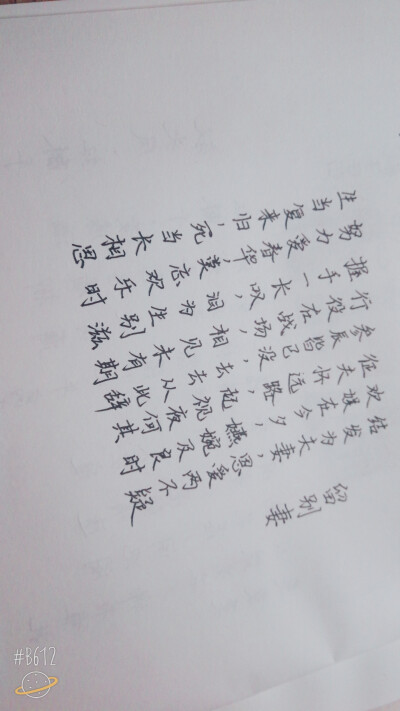 留别妻
结发为夫妻,恩爱两不疑
欢娱在今夕,嬿婉及良时
征夫怀远路,起视夜何其
参辰皆已没,去去从此辞
行役在战场,相见未有期
握手一长叹,泪为生别滋
努力爱春华,莫忘欢乐时
生当复来归,死当长相思
#B612